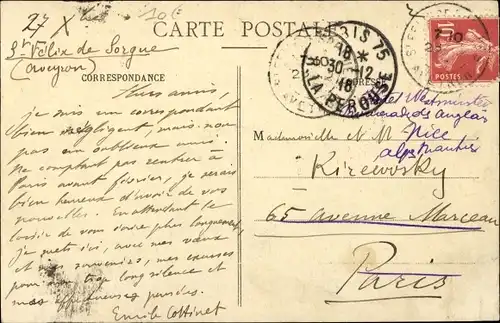 27 X
CARTE POSTALE
St Félix de Sorgue
(Aveyron)
CORRESPONDANCE
Chers amis,
je suis un correspondant
bien négligent, mais non
pas un oublieux ami.
Ne comptant pas rentrer à
Paris avant février, je serais
bien heureux d'avoir de vos
nouvelles. En attendant le
loisir de vous écrire plus longuement,
je mets ici, avec mes vœux
et mes souvenirs, mes excuses
pour mon trop long silence et
mes affectueuses pensées.
Emile Cottinet
PARIS 75
18 *
30-12
18
LA PEROUSE
10
POSTES
7 10
AVEYRON
Hotel Westminster
Promenade des Anglais
Nice
Alpes Maritimes
Mademoiselle et M
Kirevosky
65 avenue Marceau
Paris